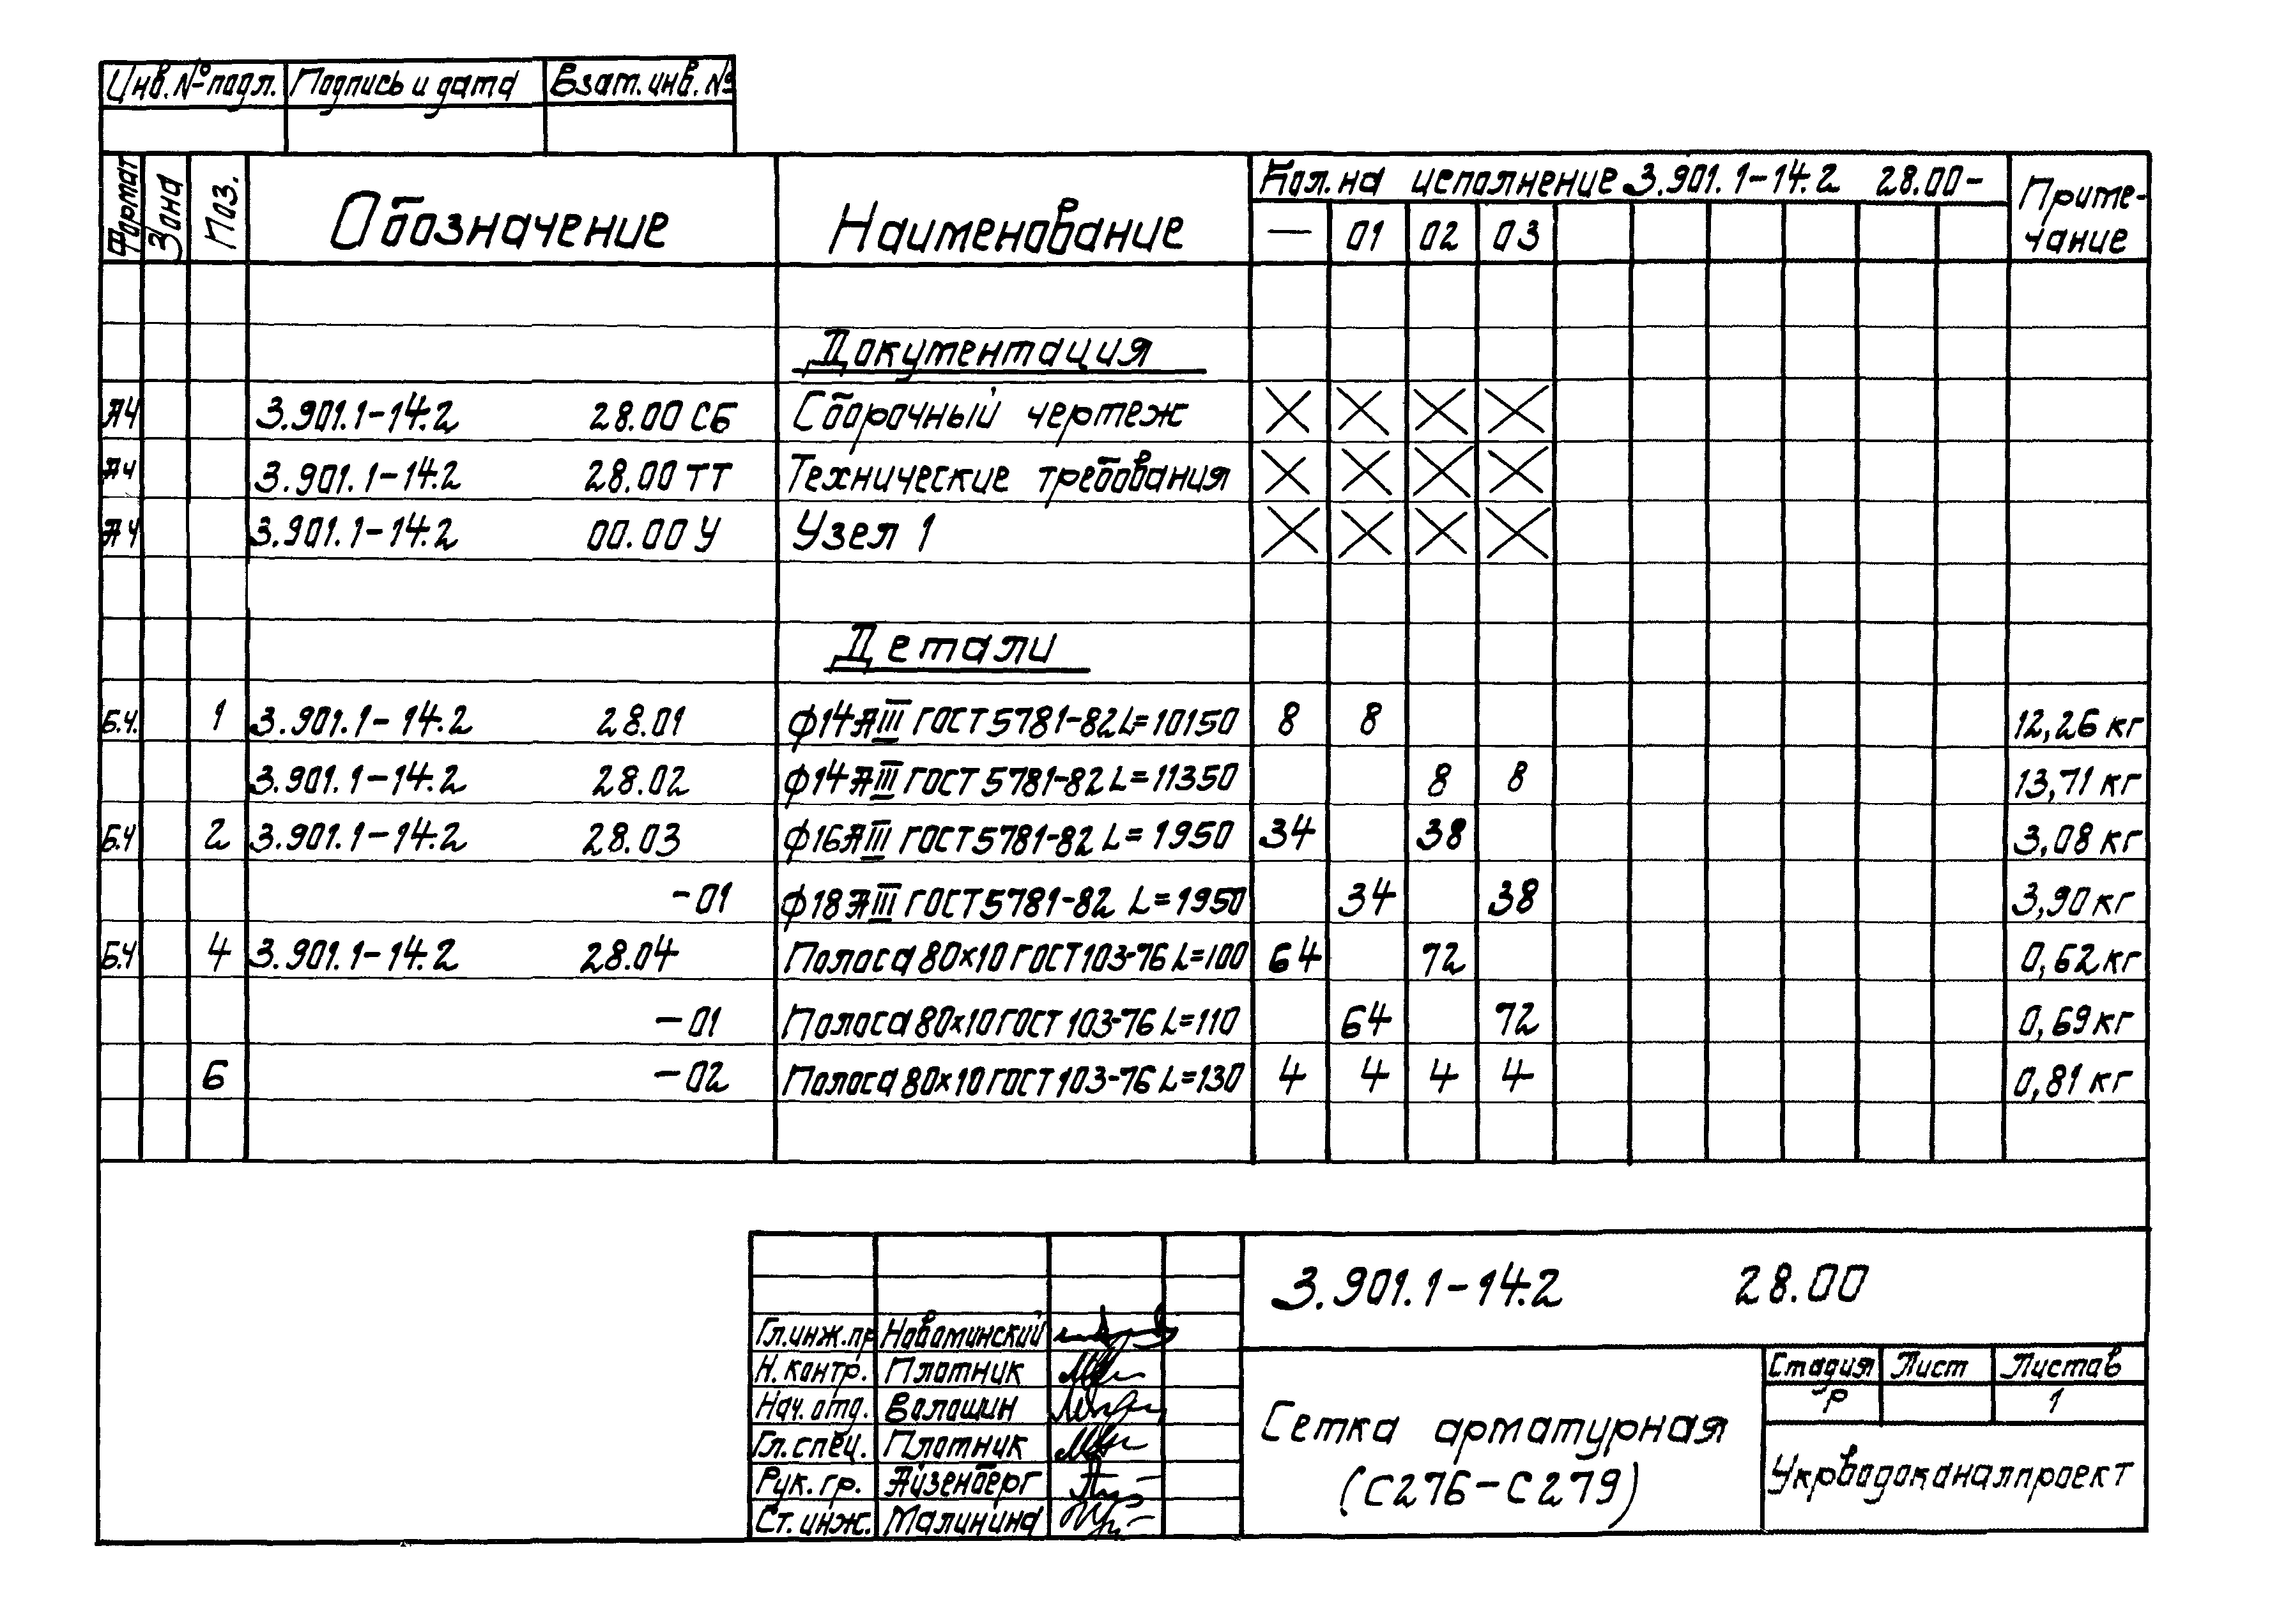 Инв. № подл. Подпись и дата Взам. инв. №
Формат Зона Поз. Обозначение Наименование Кол. на исполнение 3.901.1-14.2 28.00- Приме-
чание
— 01 02 03
Документация
А4 3.901.1-14.2 28.00 СБ Сборочный чертеж
А4 3.901.1-14.2 28.00 ТТ Технические требования
А4 3.901.1-14.2 00.00 У Узел 1
Детали
Б.Ч. 1 3.901.1-14.2 28.01 ф14АIII ГОСТ 5781-82 L=10150 8 8 12,26 кг
3.901.1-14.2 28.02 ф14АIII ГОСТ 5781-82 L=11350 8 8 13,71 кг
Б.Ч 2 3.901.1-14.2 28.03 ф16АIII ГОСТ 5781-82 L=1950 34 38 3,08 кг
-01 ф18АIII ГОСТ 5781-82 L=1950 34 38 3,90 кг
Б.Ч 4 3.901.1-14.2 28.04 Полоса 80×10 ГОСТ 103-76 L=100 64 72 0,62 кг
-01 Полоса 80×10 ГОСТ 103-76 L=110 64 72 0,69 кг
6 -02 Полоса 80×10 ГОСТ 103-76 L=130 4 4 4 4 0,81 кг
3.901.1-14.2 28.00
Гл.инж.пр Новоминский
Н. контр. Плотник
Нач. отд. Волошин
Гл. спец. Плотник
Рук. гр. Айзенберг
Ст. инж. Малинина
Сетка арматурная
(С276-С279)
Стадия Лист Листов
Р 1
Укрводоканалпроект